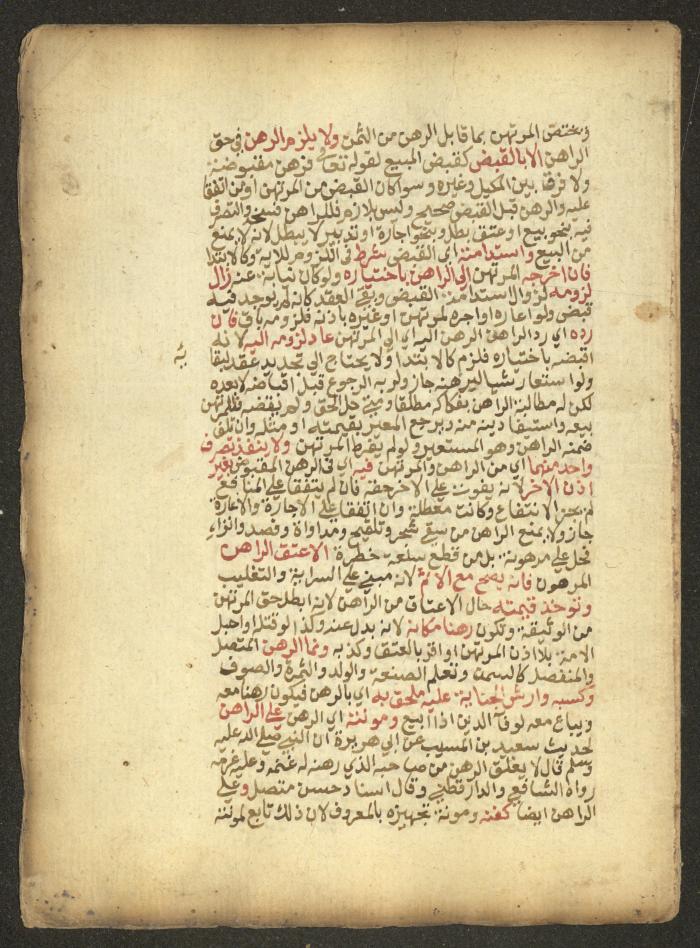 ويختص المرتهن بما قابل الرهن من الثمن ولا يلزم الرهن في حق
الراهن الا بالقبض كقبض المبيع لقوله تعالى فرهن مقبوضة
ولا فرق بين المكيل وغيره وسوا كان القبض من المرتهن او من اتفقا
عليه والرهن قبل القبض صحيح وليس بلازم فللراهن فسخه والتصرف
فيه بنحو بيع او عتق بطل وبنحو اجارة او تدبير لا يبطل لانه لا يمنع
من البيع واستدامته اي القبض شرط في اللزوم للاية وكالابتدا
فان اخرجه المرتهن الي الراهن باختياره ولو كان نيابة عنه زال
لزومه لزوال استدامة القبض وبقي العقد كانه لم يوجد فيه
قبض ولو اعاره او اجره لمرتهن او غيره باذنه فلزومه باق فان
رده اي رد الراهن الرهن اليه اي الي المرتهن عاد لزومه اليه لانه
اقبضه باختياره فلزم كالابتدا ولا يحتاج الي تجديد عقد لبقا
يه
ولو استعار شيا ليرهنه جاز ولربه الرجوع قبل اقباضه لا بعده
لكن له مطالبة الراهن بفكاكه مطلقا ومتي حل الحق ولم يقضه فللمرتهن
بيعه واستيفا دينه منه ويرجع المعير بقيمته او مثله وان تلف
ضمنه الراهن وهو المستعير ولو لم يفرط المرتهن ولا ينفذ تصرف
واحد منهما اي من الراهن والمرتهن فيه اي في الرهن المقبوض بغير
اذن الاخر لانه يفوت علي الاخر حقه فان لم يتفقا علي المنافع
لم يجز الانتفاع وكانت معطلة وان اتفقا علي الاجارة والاعارة
جاز ولا يمنع الراهن من سقي شجر وتلقيح ومداواة وفصد وانزاء
فحل علي مرهونة بل من قطع سلعة خطرة الا عتق الراهن
المرهون فانه يصح مع الاثم لانه مبني علي السراية والتغليب
وتوخذ قيمته حال الاعتاق من الراهن لانه ابطل حق المرتهن
من الوثيقة وتكون رهنا مكانه لانه بدل عنه وكذا لو قتله او احبل
الامة بلا اذن المرتهن او اقر بالعتق وكذبه ونما الرهن المتصل
والمنفصل كالسمن وتعلم الصنعة والولد والثمرة والصوف
وكسبه وارش الجناية عليه ملحق به اي بالرهن فيكون رهنا معه
ويباع معه لوفا الدين اذا ابيع ومونته اي الرهن علي الراهن
لحديث سعيد بن المسيب عن ابي هريرة ان النبي صلي الله عليه
وسلم قال لا يغلق الرهن من صاحبه الذي رهنه له غنمه وعليه غرمه
رواه الشافعي والدارقطني وقال اسناد حسن متصل وعلي
الراهن ايضا كفنه ومونة تجهيزه بالمعروف لان ذلك تابع لمونته